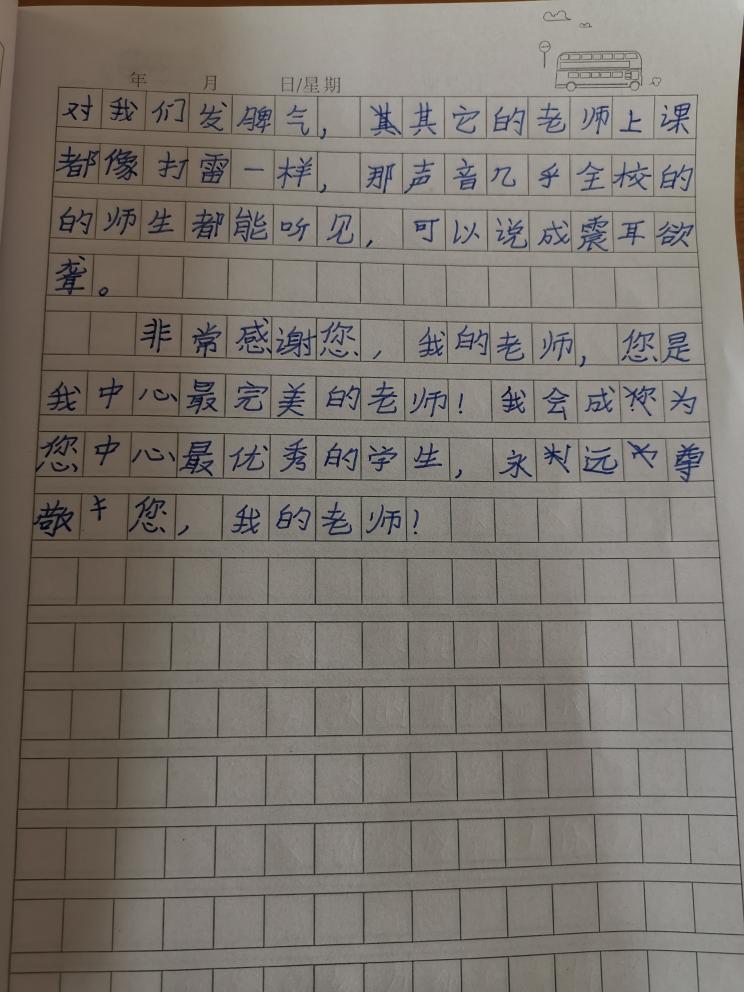 年 月 日/星期
对我们发脾气，其其它的老师上课
都像打雷一样，那声音几乎全校的
的师生都能听见，可以说成震耳欲
聋。
非常感谢您，我的老师，您是
我中心最完美的老师！我会成为
您中心最优秀的学生，永远尊
敬您，我的老师！